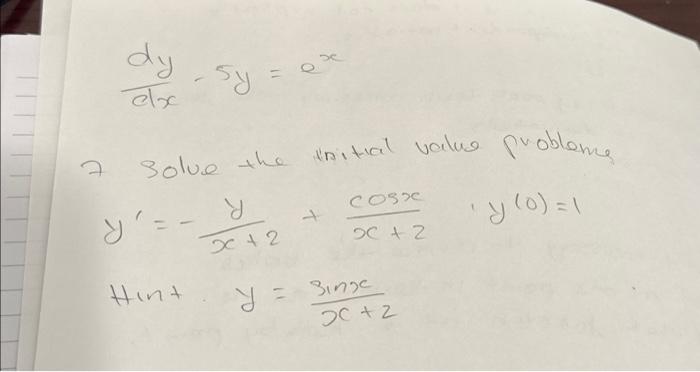 dy/dx - 5y = e^x
7 Solve the initial value problems
y' = - y/(x + 2) + cosx/(x + 2) , y(0) = 1
Hint. y = sinx/(x + 2)